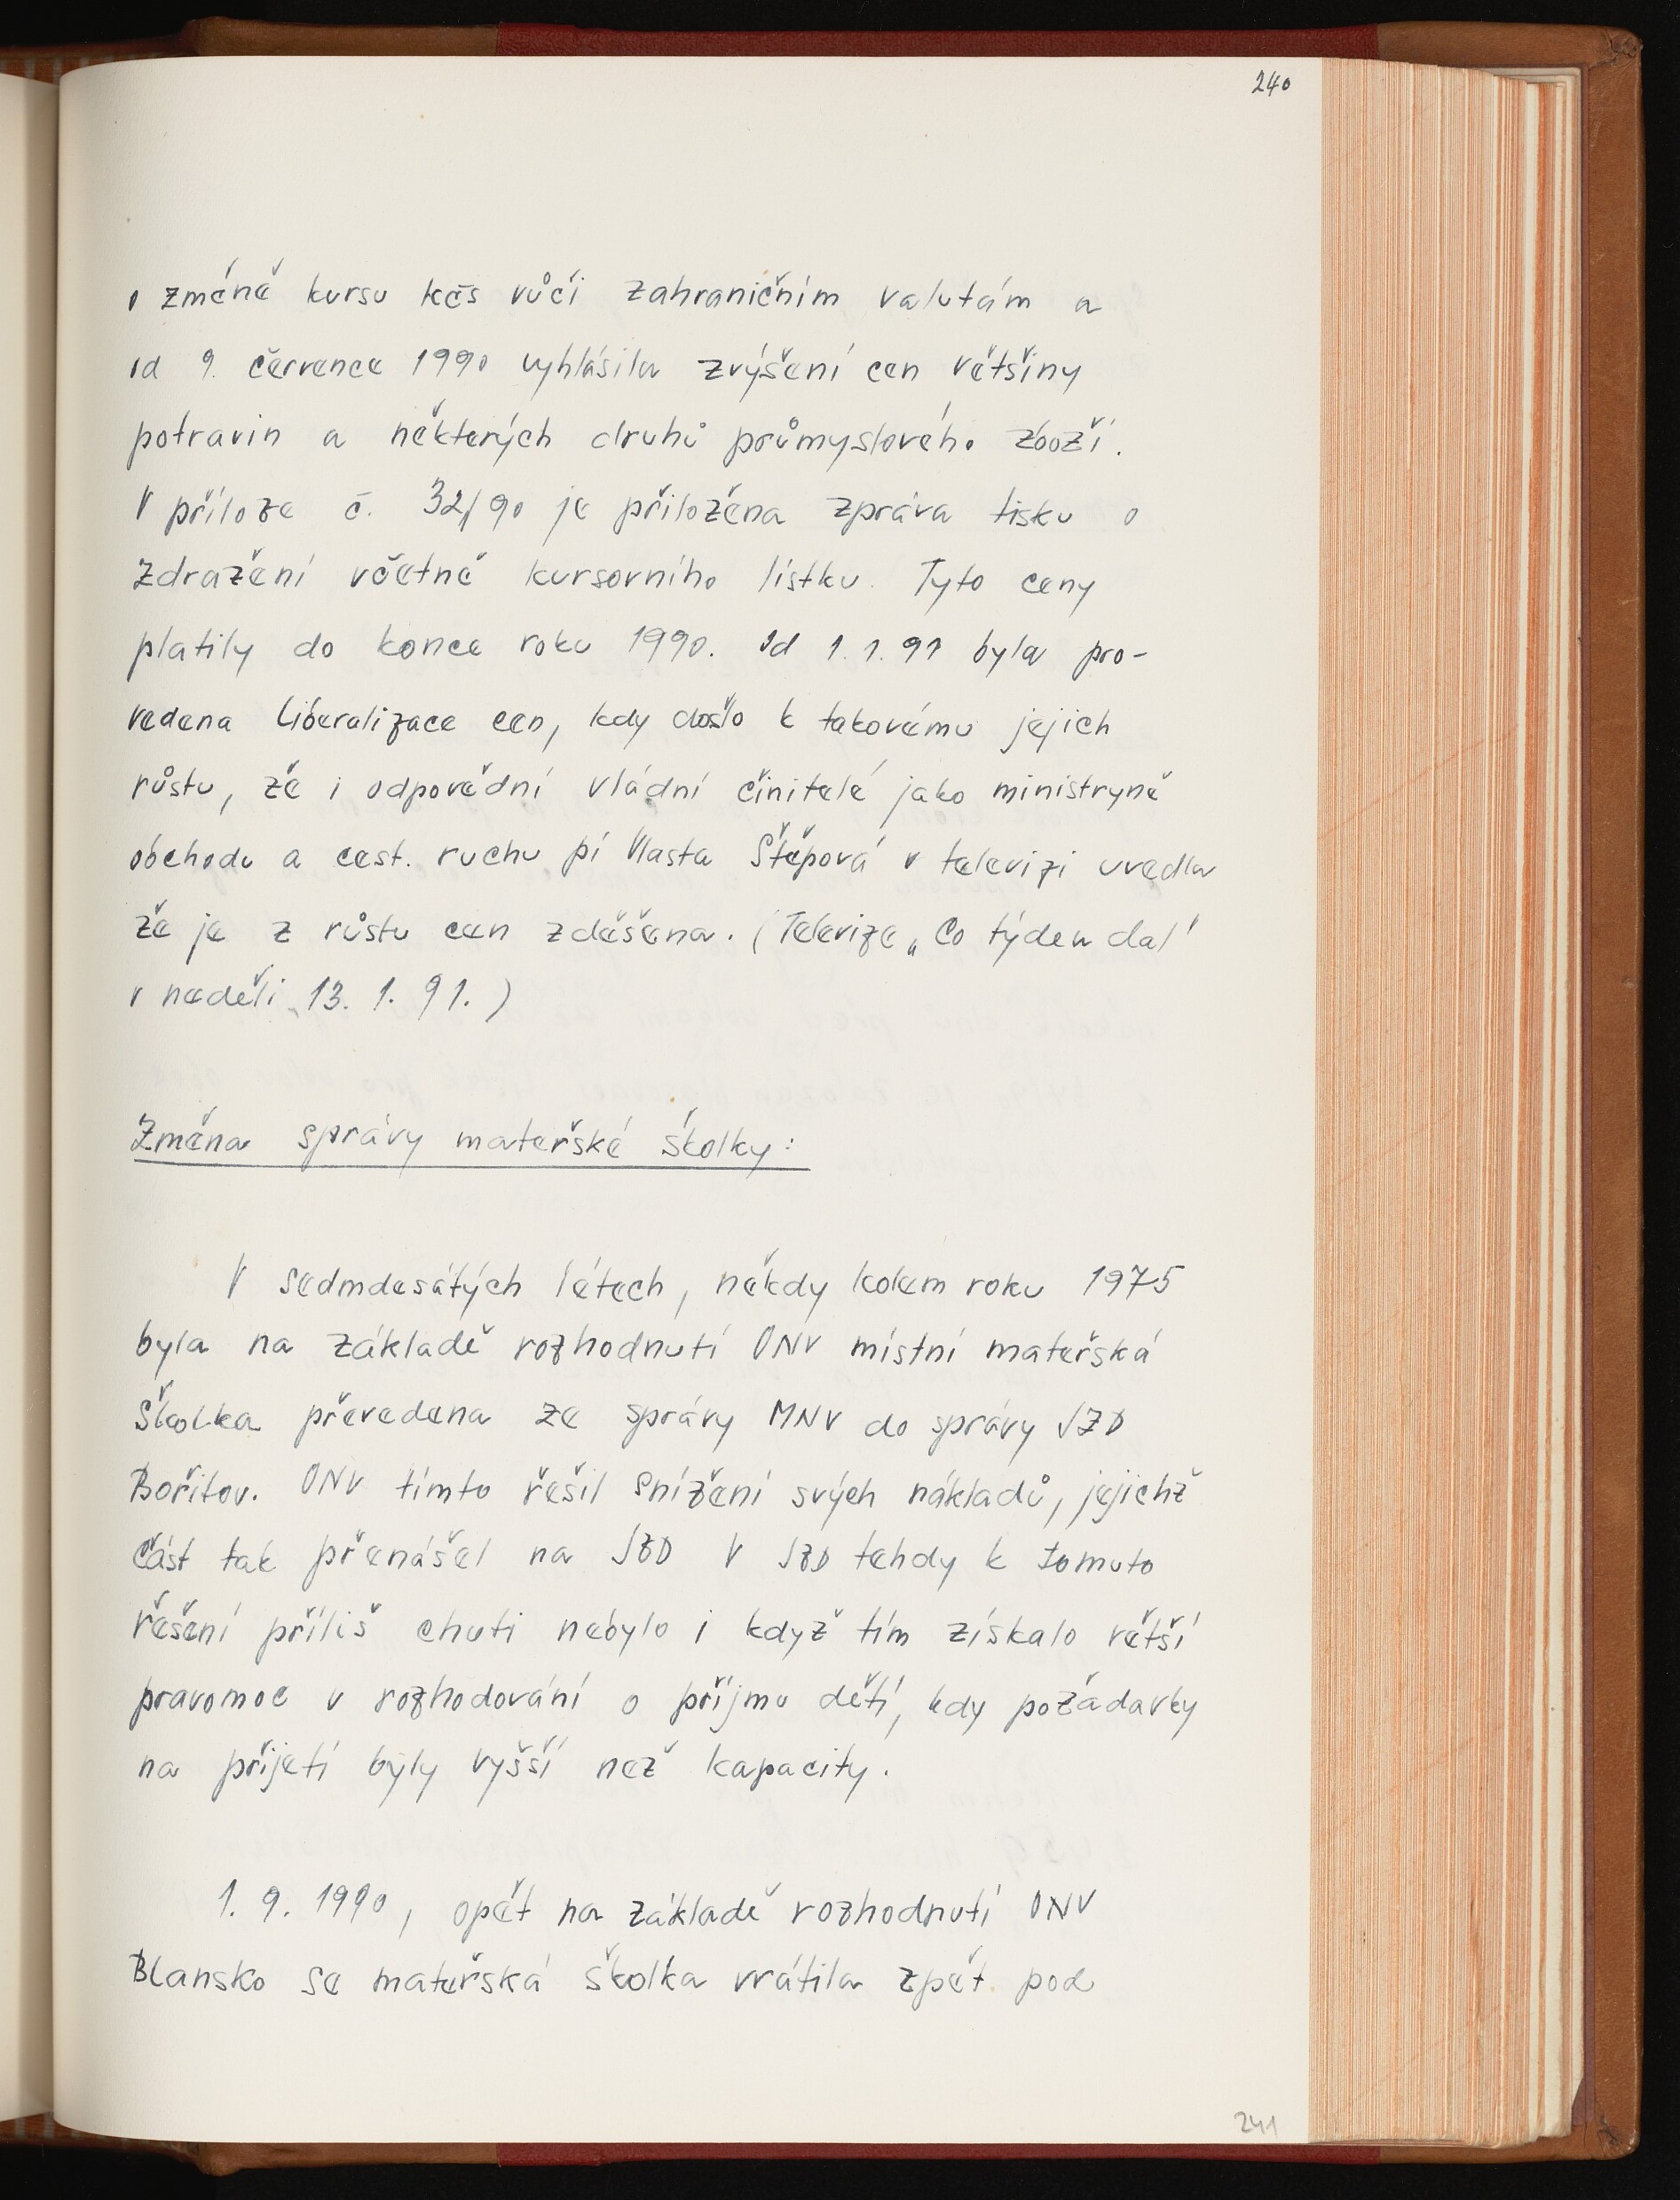 240
o změně kursu kčs vůči zahraničním valutám a
od 9. července 1990 vyhlásila zvýšení cen většiny
potravin a některých druhů průmyslového zboží.
V příloze č. 32/90 je přiložena zpráva tisku o
zdražení včetně kursovního lístku. Tyto ceny
platily do konce roku 1990. Od 1.1.91 byla pro-
vedena liberalizace cen, kdy došlo k takovému jejich
růstu, že i odpovědní vládní činitelé jako ministryně
obchodu a cest. ruchu pí Vlasta Štěpová v televizi uvedla
že je z růstu cen zděšena. (Televize „Co týden dal"
v neděli 13. 1. 91.)
Změna správy mateřské školky:
V sedmdesátých létech, někdy kolem roku 1975
byla na základě rozhodnutí ONV místní mateřská
školka převedena ze správy MNV do správy JZD
Bořitov. ONV tímto řešil snížení svých nákladů, jejichž
část tak přenášel na JZD V JZD tehdy k tomuto
řešení příliš chuti nebylo i když tím získalo větší
pravomoc v rozhodování o příjmu dětí, kdy požadavky
na přijetí byly vyšší než kapacity.
1. 9. 1990, opět na základě rozhodnutí ONV
Blansko se mateřská školka vrátila zpět pod
241